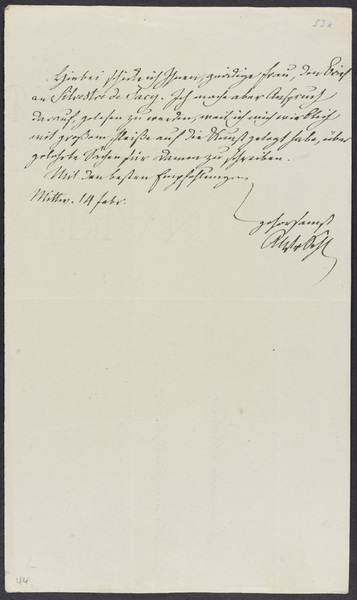 53a
Hiebei schicke ich Ihnen, gnädige Frau, den Brief
an Silvestre de Sacy. Ich mache aber Anspruch
darauf gelesen zu werden, weil ich mich wirklich
mit großem Fleiße auf die Kunst gelegt habe, über
gelehrte Sachen für Damen zu schreiben.
Mit den besten Empfehlungen
Mittw. 14 Febr.
gehorsamst
44